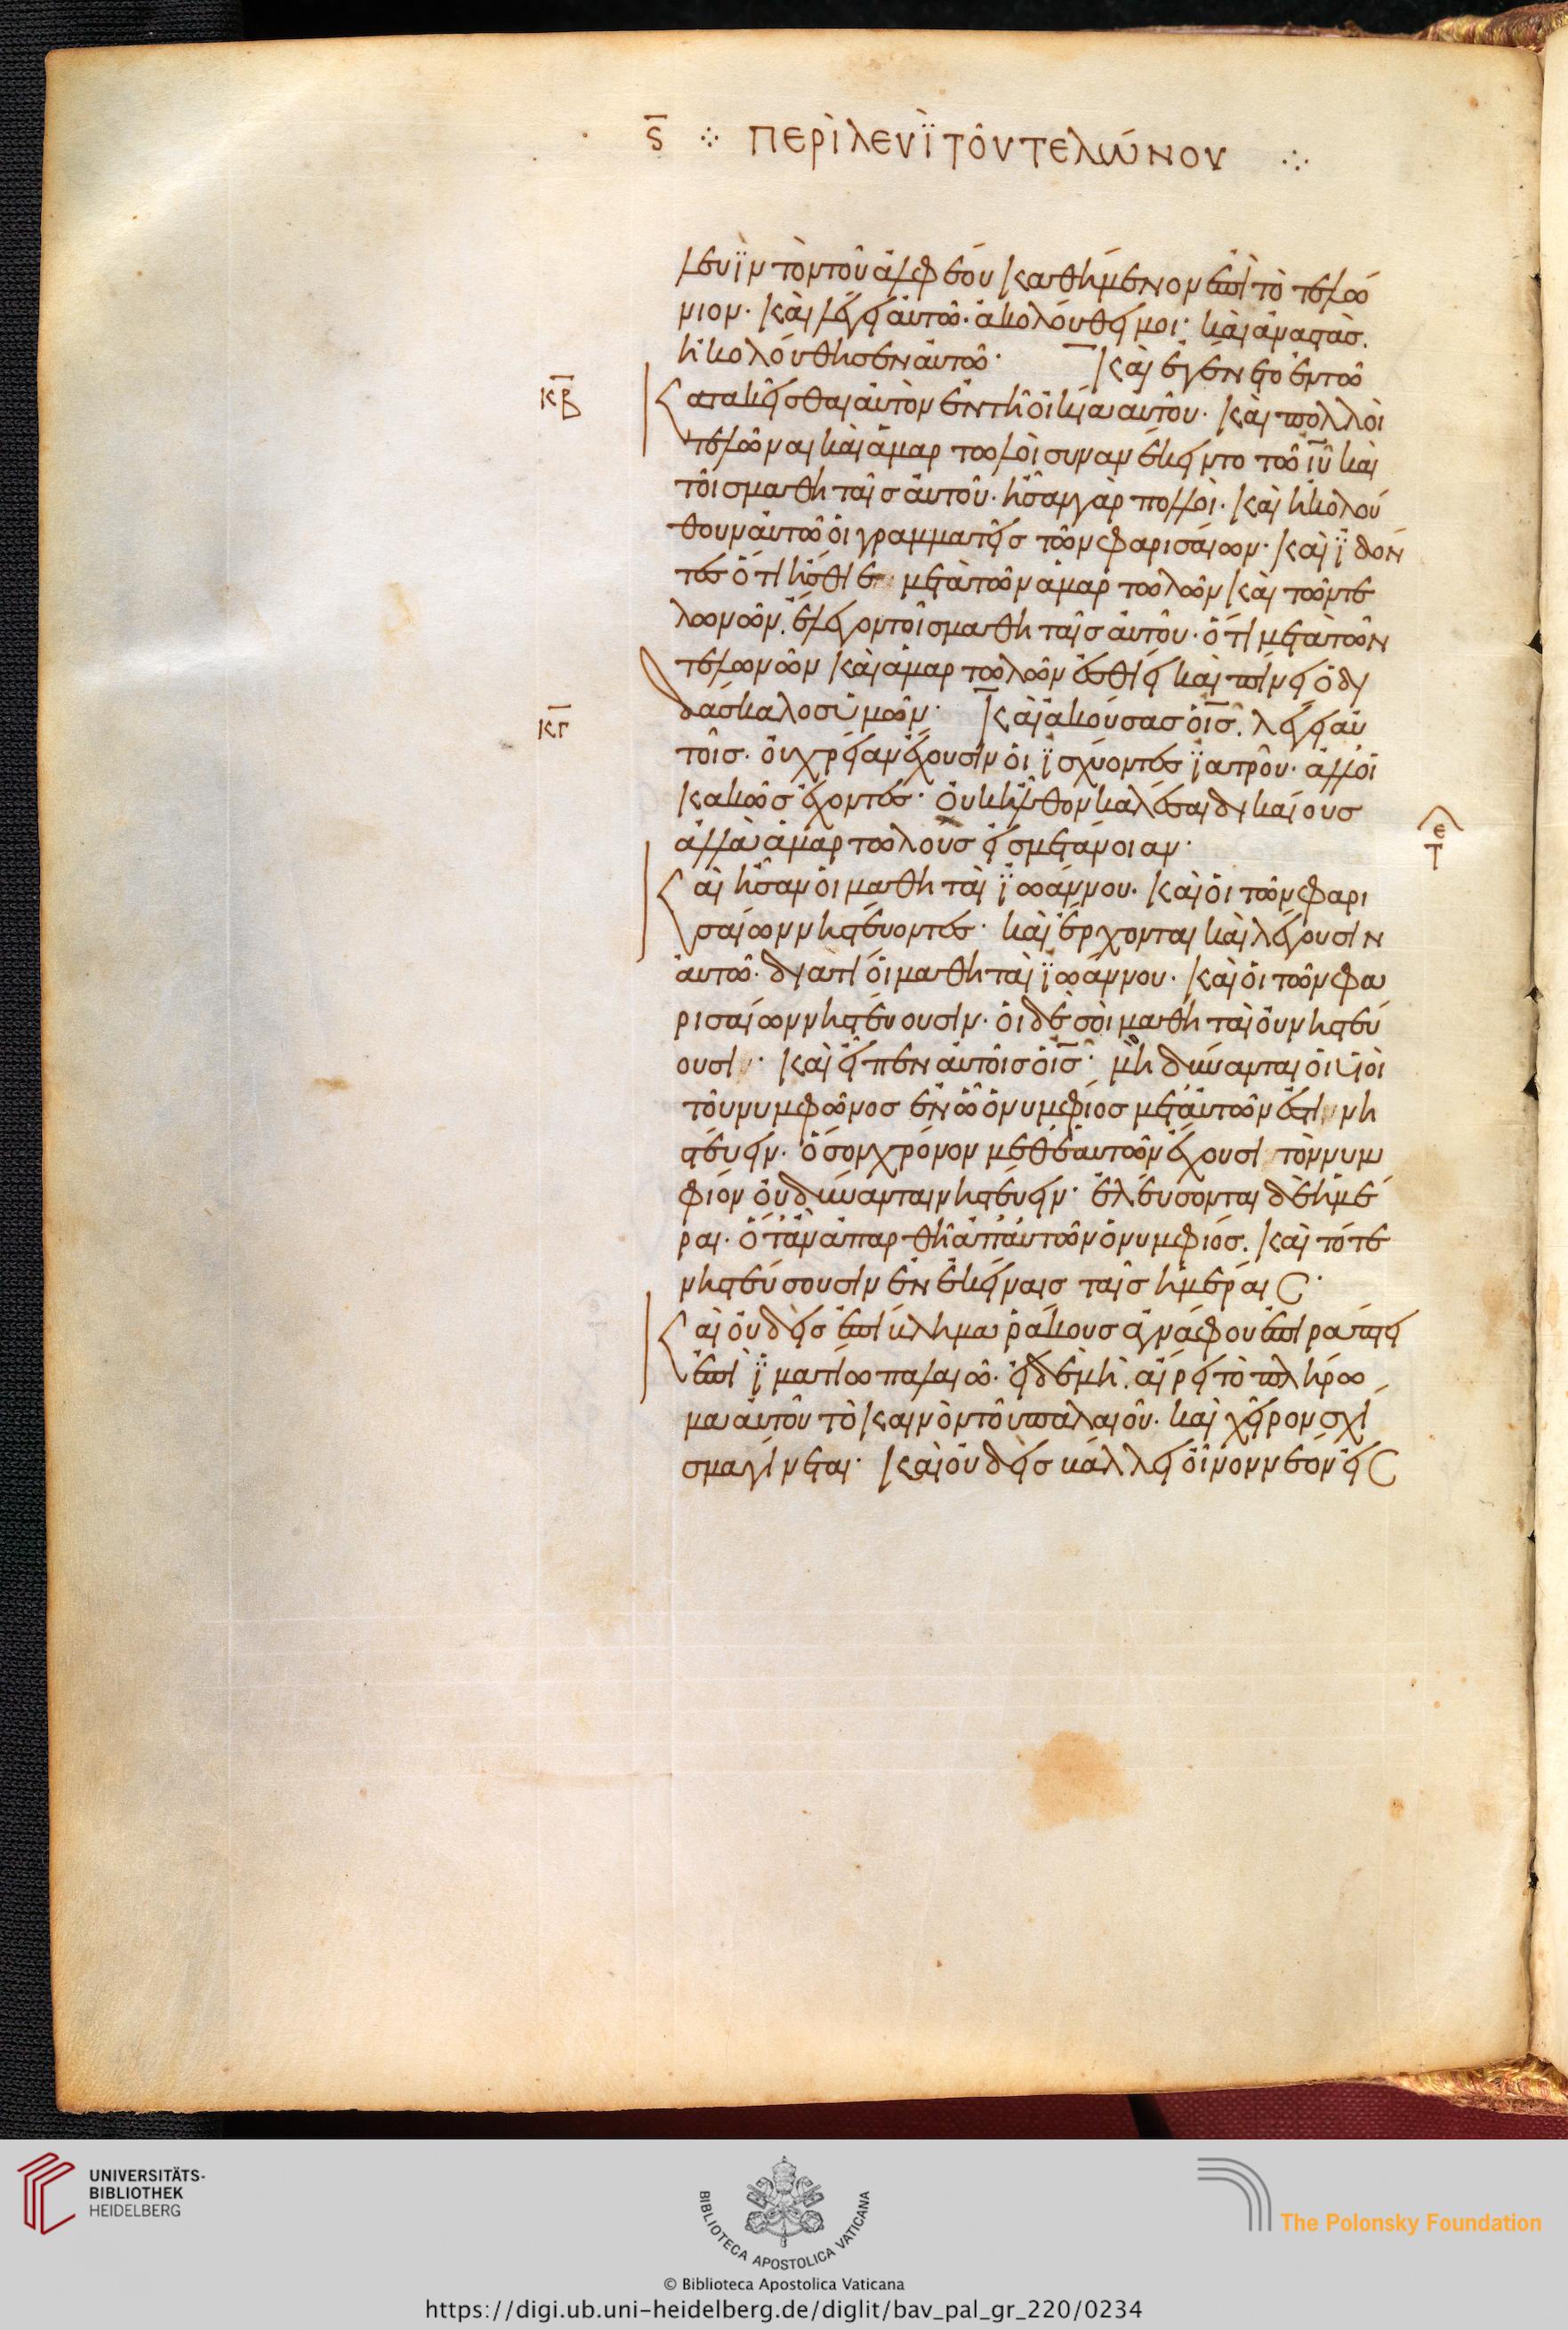 ς ⁘ περὶ λευϊ τοῦ τελώνου ⁘
λευῒν τὸν τοῦ ἀλφέου καθήμενον ἐπὶ τὸ τελώ
νιον· καὶ λέγει αὐτῶ· ἀκολούθει μοι· καὶ ἀναστὰς.
ἠκολούθησεν αὐτῶ· Καὶ ἐγένετο ἐν τῶ
κβ
κατακεῖσθαι αὐτὸν ἐν τῆ οἰκία αὐτοῦ· καὶ πολλοὶ
τελῶναι καὶ ἁμαρτωλοὶ συνανέκειντο τῶ ιυ καὶ
τοῖς μαθηταῖς αὐτοῦ· ἦσαν γὰρ πολλοὶ· καὶ ἠκολού
θουν αὐτῶ οἱ γραμματεῖς τῶν φαρισαίων· καὶ ἰδόν
τες ὅτι ἤσθιε μετὰ τῶν ἁμαρτωλῶν καὶ τῶν τε
λωνῶν. ἔλεγον τοῖς μαθηταῖς αὐτοῦ· ὅτι μετὰ τῶν
τελωνῶν καὶ ἁμαρτωλῶν ἐσθίει καὶ πίνει ὁ δι
κγ
δάσκαλος ὑμῶν· Καὶ ἀκούσας ὁ ις. λέγει αὐ
τοῖς· οὐ χρείαν ἔχουσιν οἱ ἰσχύοντες ἰατροῦ· ἀλλ οἱ
κακῶς ἔχοντες· οὐκ ἦλθον καλέσαι δικαίους
ἀλλὰ ἁμαρτωλοὺς εἰς μετάνοιαν·
ετ
Καὶ ἦσαν οἱ μαθηταὶ ἰωάννου· καὶ οἱ τῶν φαρι
σαίων νηστεύοντες· καὶ ἔρχονται καὶ λέγουσιν
αὐτῶ· διατί οἱ μαθηταὶ ἰωάννου· καὶ οἱ τῶν φα
ρισαίων νηστεύουσιν· οἱ δὲ σοὶ μαθηταὶ οὐ νηστεύ
ουσι· καὶ εἶπεν αὐτοῖς ὁ ις· μὴ δύνανται οἱ υἱοὶ
τοῦ νυμφῶνος ἐν ὧ ὁ νυμφίος μετ αὐτῶν ἐστι νη
στεύειν· ὅσον χρόνον μεθ ἑαυτῶν ἔχουσι τὸν νυμ
φίον οὐ δύνανται νηστεύειν· ἐλεύσονται δὲ ἡμέ
ραι· ὅταν ἀπαρθῆ ἀπ αὐτῶν ὁ νυμφίος. καὶ τότε
νηστεύσουσιν ἐν ἐκείναις ταῖς ἡμέραις·
Καὶ οὐδεὶς ἐπίβλημα ῥάκους ἀγνάφου ἐπιράπτει
ἐπὶ ἱματίω παλαιῶ· εἰ δὲ μὴ. αἴρει τὸ πλήρω
μα αὐτοῦ τὸ καινὸν τοῦ παλαιοῦ· καὶ χεῖρον σχί
σμα γίνεται· Καὶ οὐδεὶς βάλλει οἶνον νεόν εἰς
UNIVERSITÄTS-
BIBLIOTHEK
HEIDELBERG
BIBLIOTECA APOSTOLICA VATICANA
The Polonsky Foundation
© Biblioteca Apostolica Vaticana
https://digi.ub.uni-heidelberg.de/diglit/bav_pal_gr_220/0234